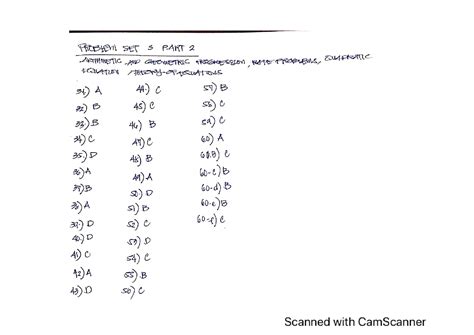 PROBLEM SET 3 PART 2
ARITHMETIC AND GEOMETRIC PROGRESSION, RATE PROBLEMS, QUADRATIC
EQUATION / THEORY OF EQUATIONS
31.) A
32.) B
33.) B
34.) C
35.) D
36.) A
37.) B
38.) A
39.) D
40.) D
41.) C
42.) A
43.) D
44.) C
45.) C
46.) B
47.) C
48.) B
49.) A
50.) D
51.) B
52.) C
53.) D
54.) C
55.) B
56.) C
57.) B
58.) C
59.) C
60.) A
60.B) C
60-c) B
60-d) B
60-e) B
60-f) C
Scanned with CamScanner